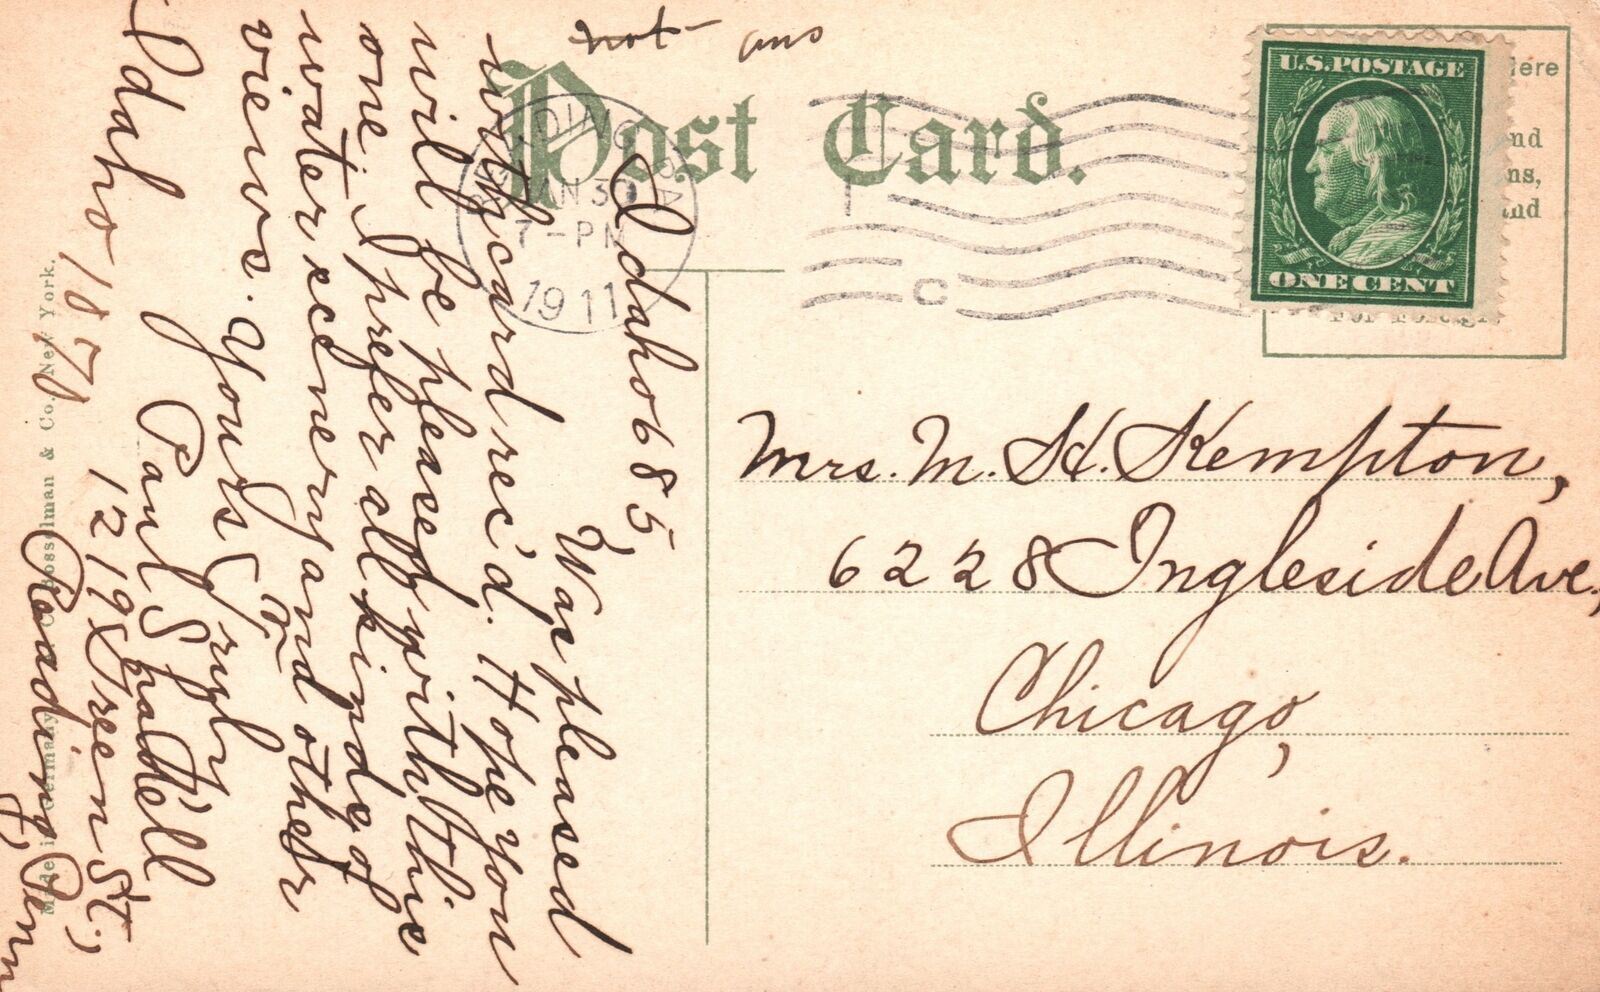 not ans
Post Card.
U.S. POSTAGE
ONE CENT
Here
and
ns,
and
For Foreign
READING PA
JAN 30
7-PM
1911
C
Idaho 685,
Was pleased
with card rec'd. Hope you
will be pleased with this
one. I prefer all kinds of
water scenery and other
views. Yours Truly
Paul Shadell
1219 Green St.,
Reading, Penn
Idaho 1871
Mrs. M. H. Kempton,
6228 Ingleside Ave,
Chicago,
Illinois.
Made in Germany
Bosselman & Co., New York.